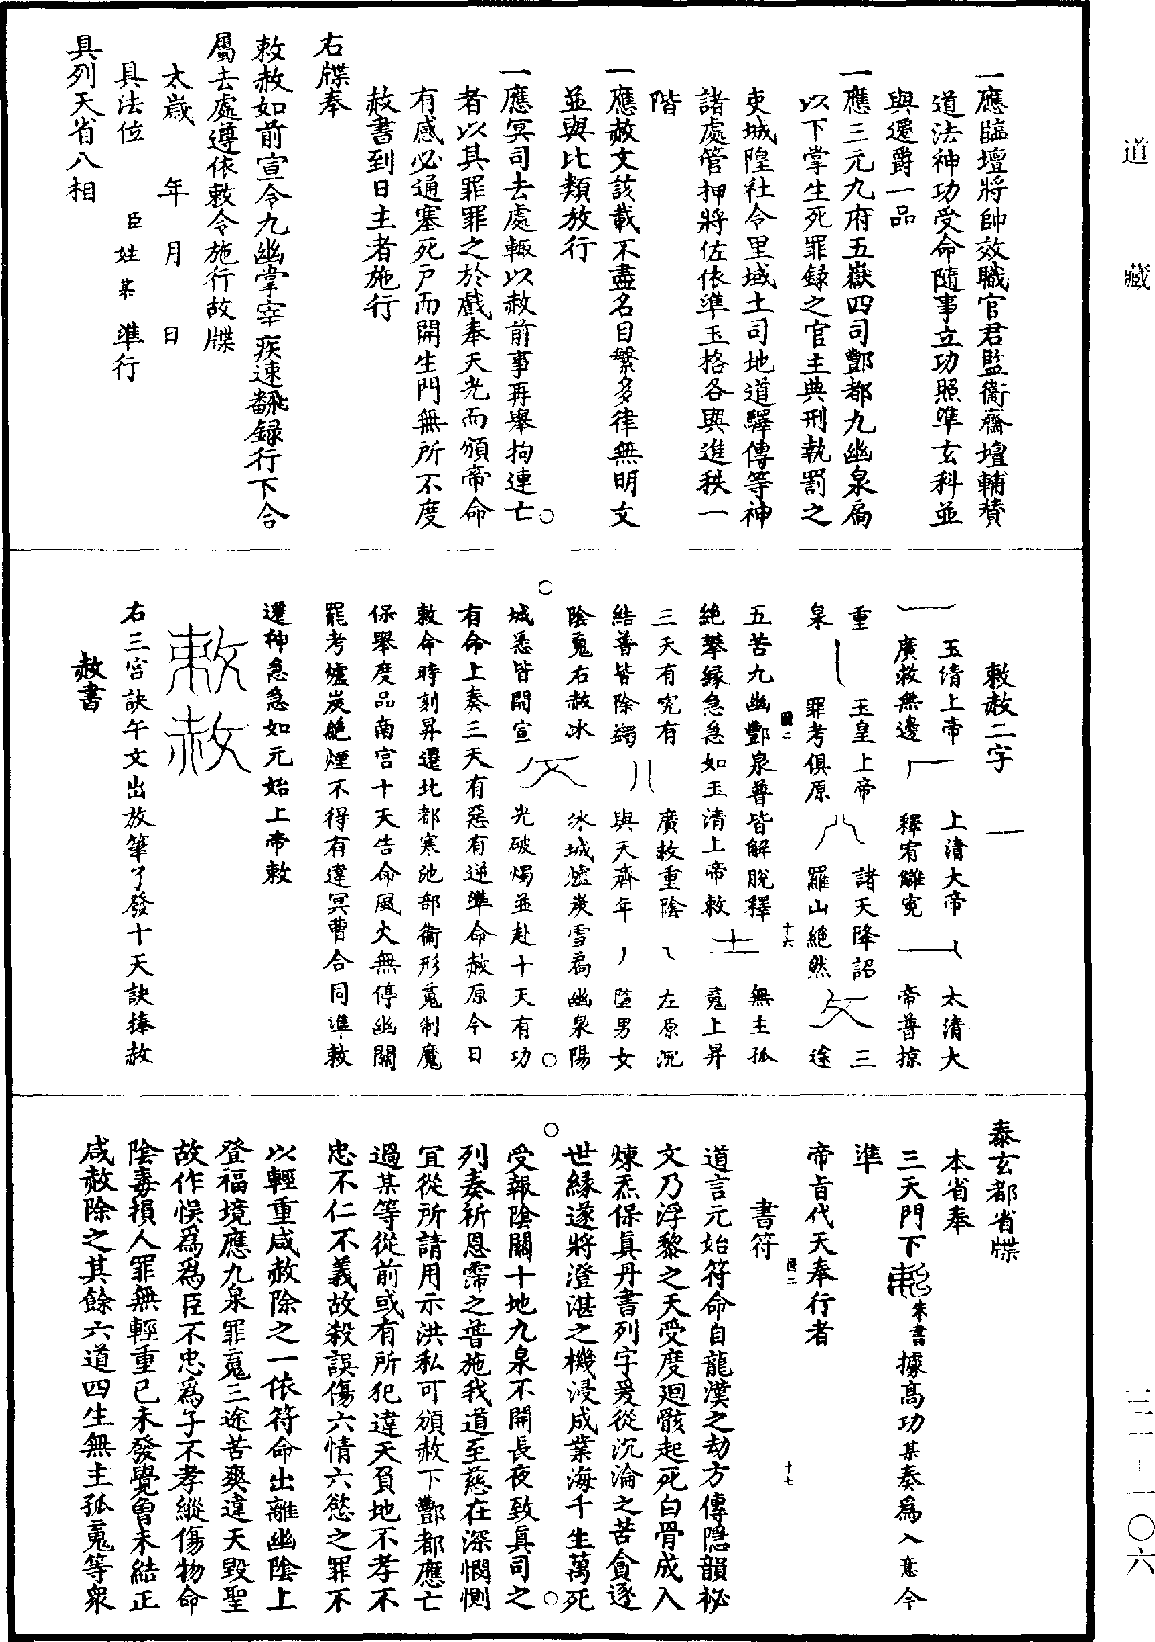 道藏
一應臨壇將帥效職官君監衛齋壇輔贊
道法神功受命隨事立功照準玄科並
與遷爵一品
一應三元九府五嶽四司酆都九幽泉扃
以下掌生死罪録之官主典刑執罰之
吏城隍社令里域土司地道驛傳等神
諸處管押將佐依準玉格各與進秩一
階
一應赦文該載不盡名目繁多律無明文
並與比類放行
一應冥司去處輙以赦前事再舉拘連亡
者以其罪罪之於戲奉天光而頒帝命
有感必通塞死戶而開生門無所不度
赦書到日主者施行
右牒奉
敕赦如前宣令九幽掌宰疾速飜録行下合
屬去處遵依敕令施行故牒
太歲 年 月 日
具法位 臣姓某 準行
具列天省八相
敕赦二字
玉清上帝 上清大帝 太清大
廣救無邊 釋宥讎寃 帝普掠
重 玉皇上帝 諸天降詔 三
泉 罪考俱原 羅山絶然 途
十六
五苦九幽酆泉普皆解脫釋 無主孤
絶攀縁急急如玉清上帝敕 䰟上昇
三天有寃有 廣救重陰 左原沉
結善皆除蠲 與天齊年 墮男女
陰䰟右赦冰 氷城爐炭雪爲幽泉陽
城悉皆開宣 光破燭並赴十天有功
有命上奏三天有惡有逆準命赦原今日
敕命時刻昇遷北都寒池部衛形䰟制魔
保舉度品南宮十天告命風火無停幽關
罷考爐炭絶煙不得有違冥曹合同準敕
遷神急急如元始上帝敕
敕赦
右三宮訣午文出放筆了發十天訣捧赦
赦書
泰玄都省牒
本省奉
三天門下敕朱書據高功某奏爲入意今
準
帝旨代天奉行者
書符
十七
道言元始符命自龍漢之劫方傳隠韻祕
文乃浮黎之天受度迴骸起死白骨成人
煉炁保真丹書列字爰從沉淪之苦貪逐
世縁遂將澄湛之機浸成業海千生萬死
受報陰關十地九泉不開長夜致真司之
列奏祈恩霈之普施我道至慈在深憫惻
宜從所請用示洪私可頒赦下酆都應亡
過某等從前或有所犯違天負地不孝不
忠不仁不義故殺誤傷六情六慾之罪不
以輕重咸赦除之一依符命出離幽陰上
登福境應九泉罪䰟三途苦爽違天毀聖
故作悞爲爲臣不忠爲子不孝縱傷物命
陰毒損人罪無輕重已未發覺曾未結正
咸赦除之其餘六道四生無主孤䰟等衆